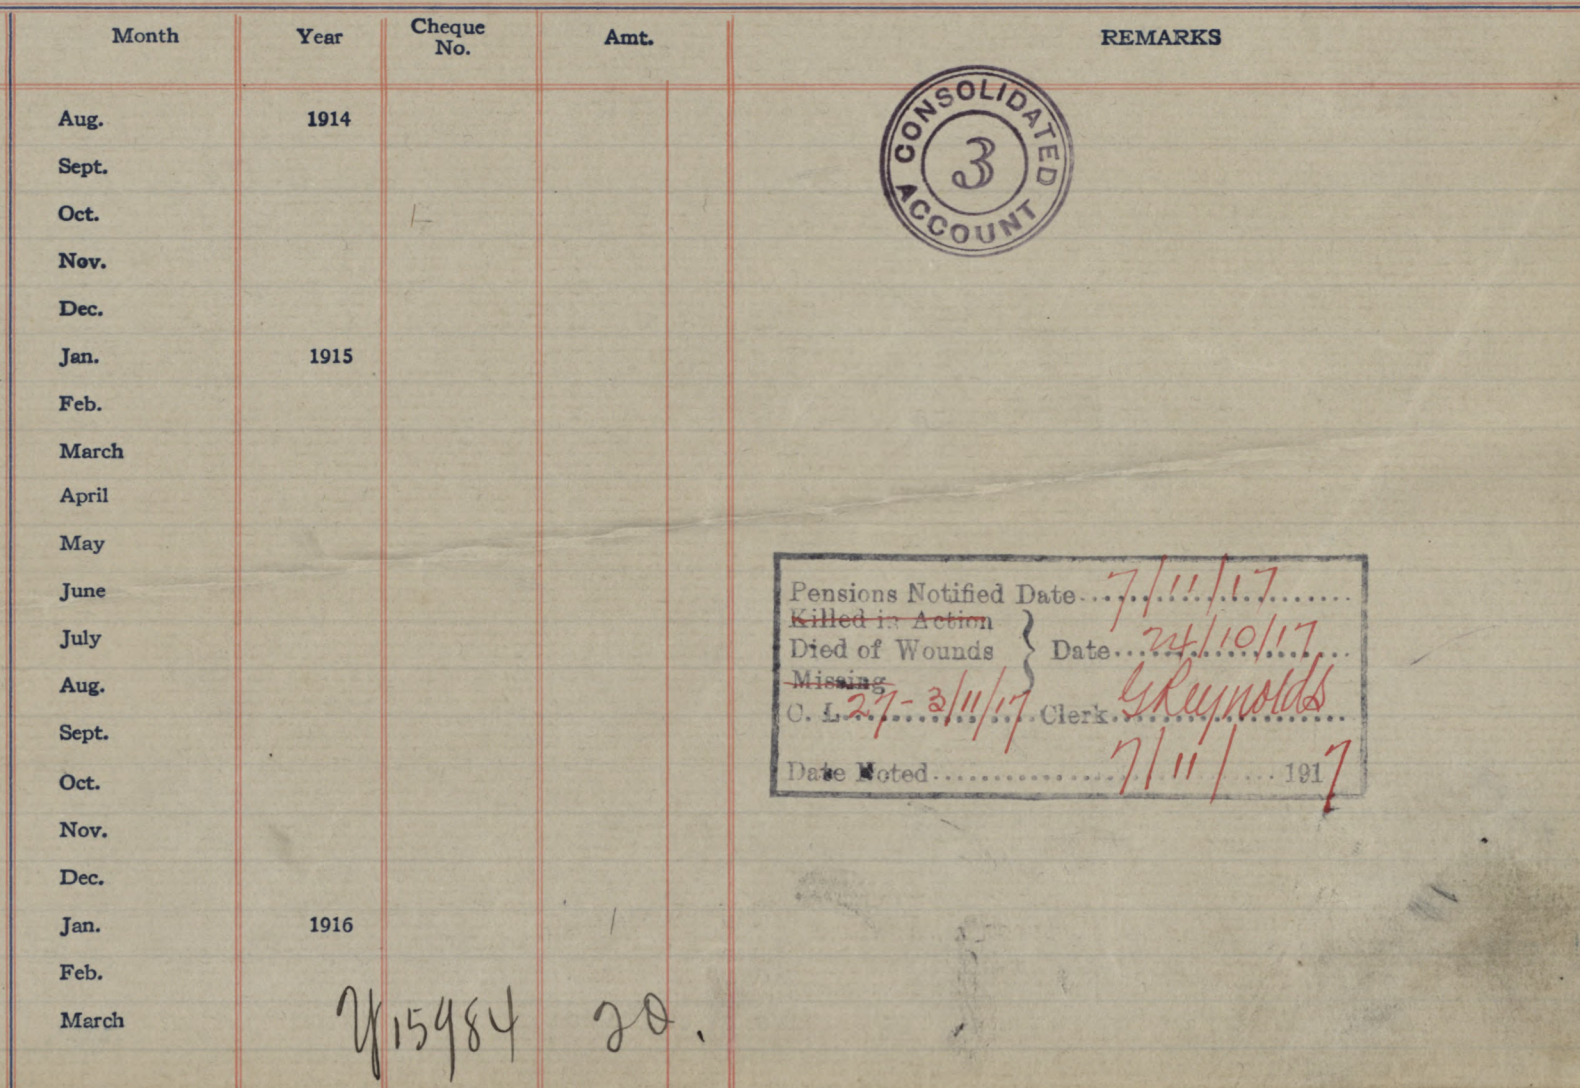 Month Year Cheque No. Amt. REMARKS
Aug. 1914
Sept.
Oct.
Nov.
Dec.
Jan. 1915
Feb.
March
April
May
June
July
Aug.
Sept.
Oct.
Nov.
Dec.
Jan. 1916
Feb.
March Y15984 20.
CONSOLIDATED ACCOUNT
3
Pensions Notified Date 7/11/17
Killed in Action
Died of Wounds } Date 24/10/17
Missing
C. L. 27-3/11/17 Clerk GReynolds
Date Noted 7/11/ 1917